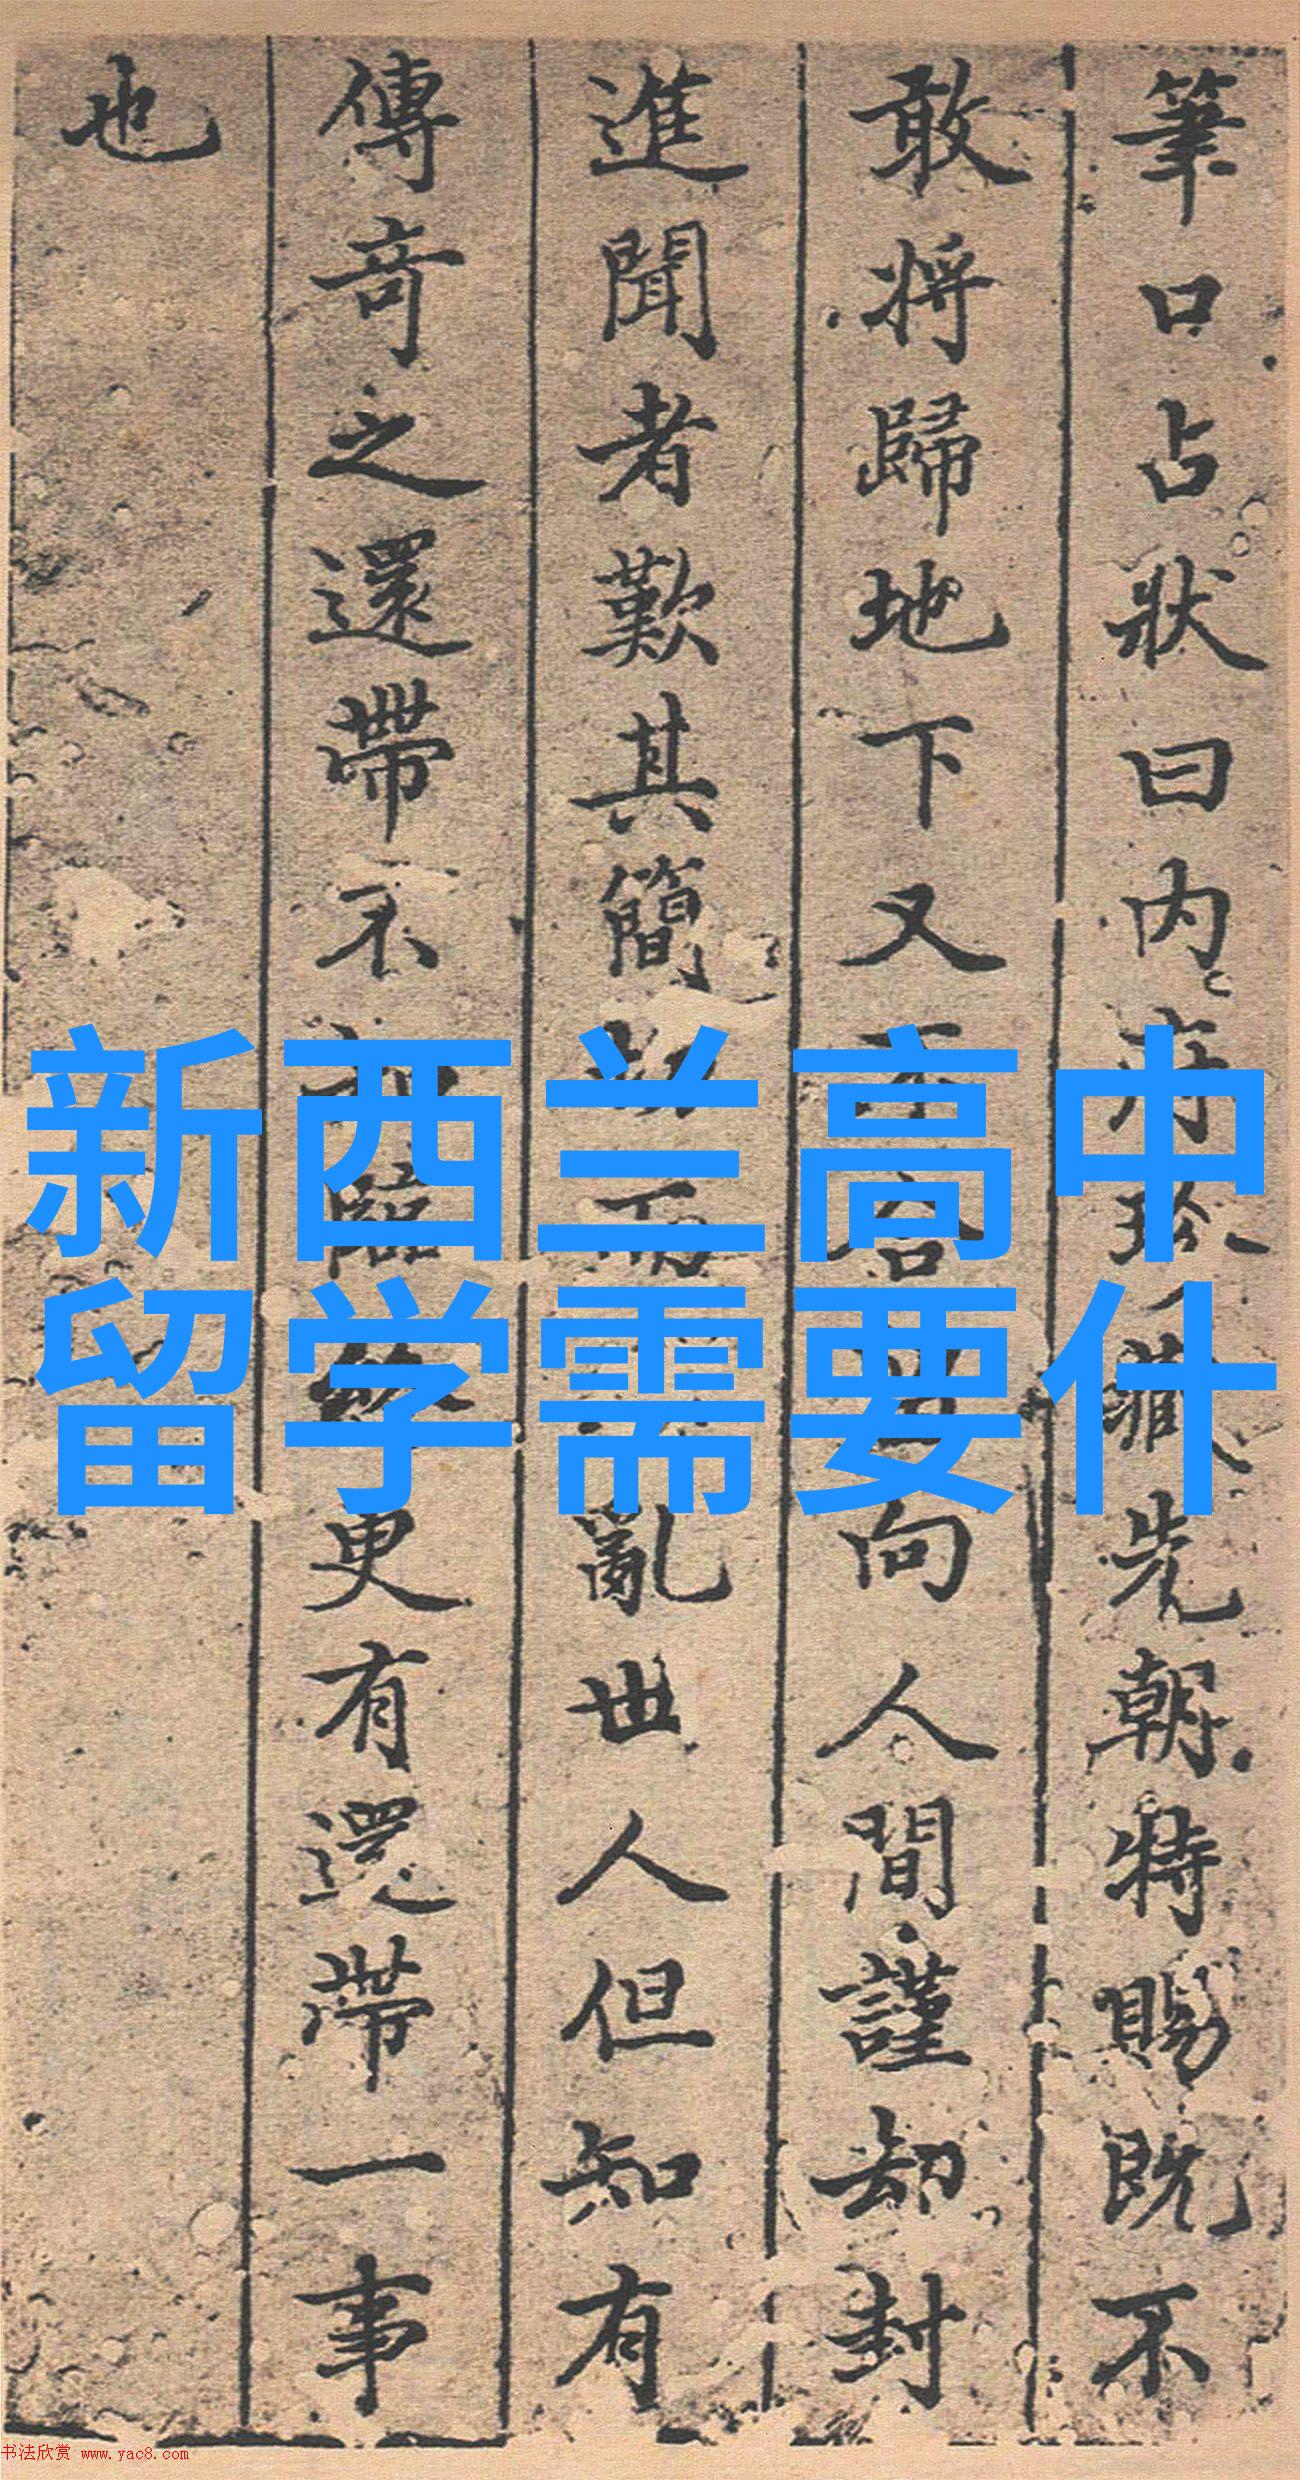 筆口占狀曰内府珎藏先朝特賜既不
敢將歸地下又不合
向人間謹却封
進聞者歎其簡
而
亂世人但知有
傳奇之還帶不
臨終更有還帶一事
也
新西兰高中
留学需要什
书法欣赏 www.yac8.com